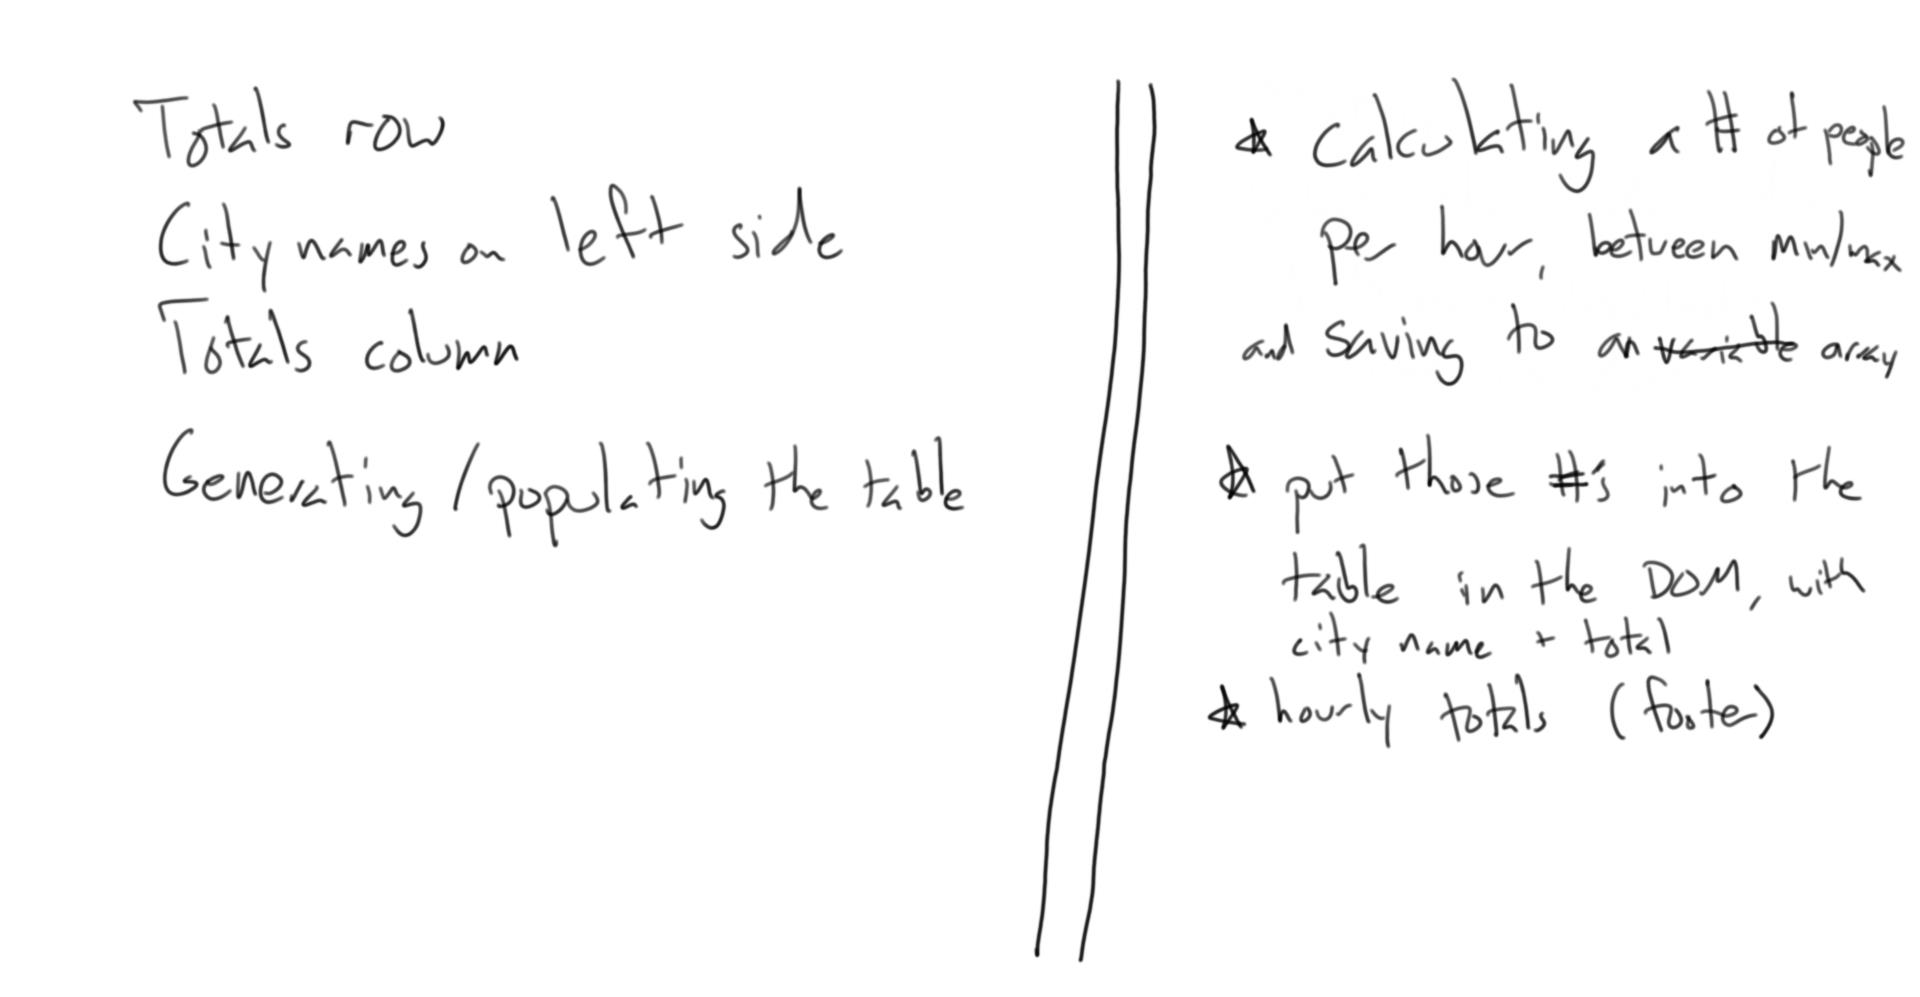 Totals row
City names on left side
Totals column
Generating / populating the table
★ Calculating a # of people
per hour, between min/max
and saving to an variable array
★ put those #'s into the
table in the DOM, with
city name + total
★ hourly totals (footer)